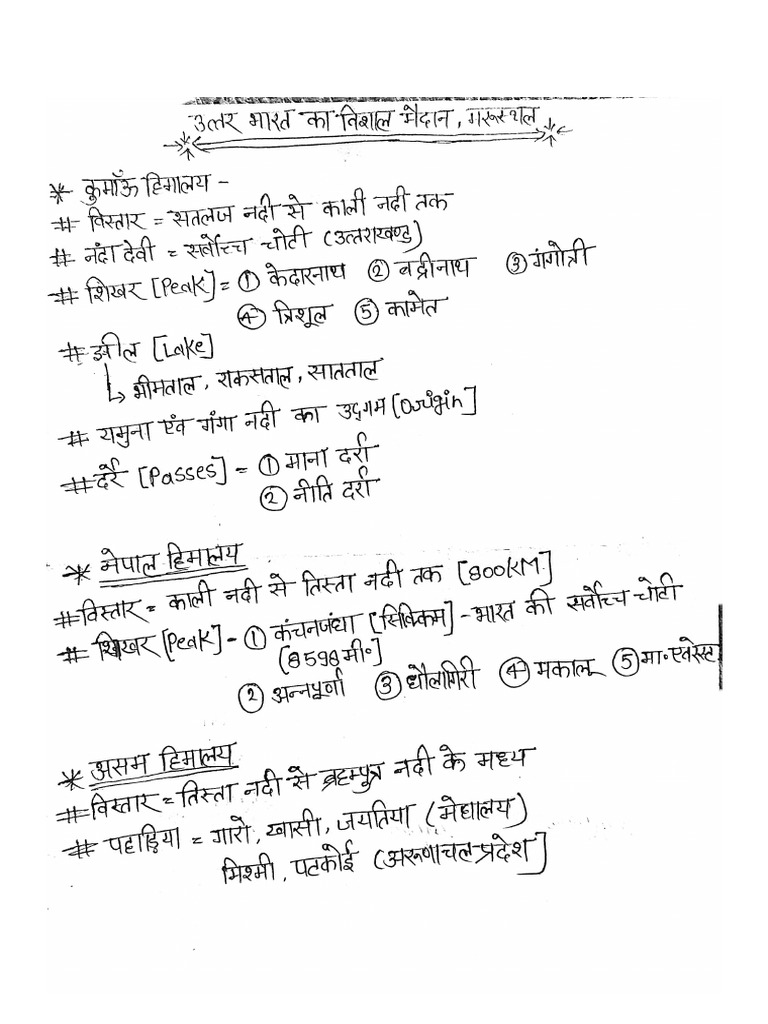 उत्तर भारत का विशाल मैदान, मरूस्थल
* कुमाऊँ हिमालय -
# विस्तार = सतलज नदी से काली नदी तक
# नंदा देवी = सर्वोच्च चोटी (उत्तराखण्ड)
# शिखर [Peak] = ① केदारनाथ ② बद्रीनाथ ③ गंगोत्री
④ त्रिशूल ⑤ कामेत
# झील [Lake]
↳ भीमताल, राकसताल, सातताल
# यमुना एंव गंगा नदी का उद्गम [Origin]
# दर्रे [Passes] = ① माना दर्रा
② नीति दर्रा
* नेपाल हिमालय
# विस्तार = काली नदी से तिस्ता नदी तक [800KM.]
# शिखर [Peak] - ① कंचनजंघा [सिक्किम] - भारत की सर्वोच्च चोटी
[8598 मी॰]
② अन्नपूर्णा ③ धौलागिरी ④ मकालू ⑤ मा॰ एवरेस्ट
* असम हिमालय
# विस्तार = तिस्ता नदी से ब्रहम्पुत्र नदी के मध्य
# पहाड़िया = गारो, खासी, जयतिया (मेघालय)
मिश्मी, पटकोई (अरूणाचल-प्रदेश]